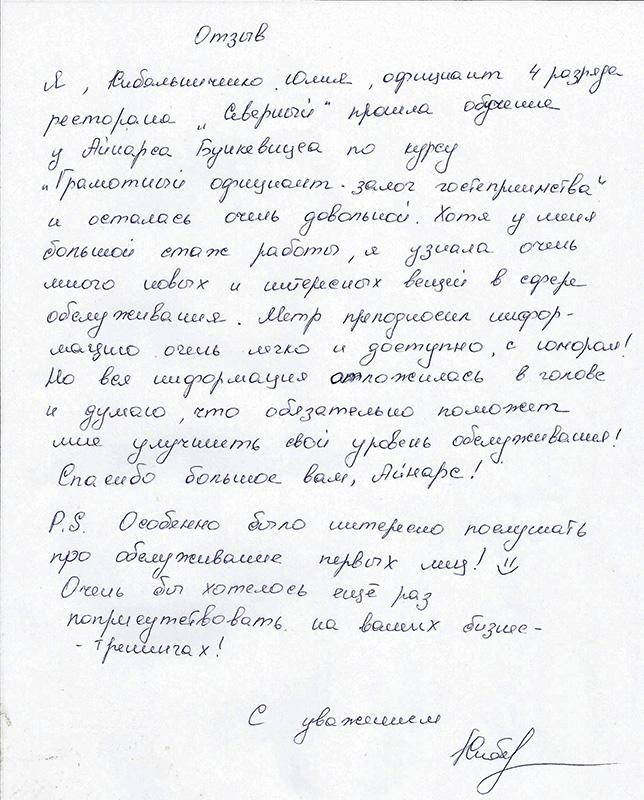 Отзыв
Я, Кибальниченко Юлия, официант 4 разряда
ресторана „Северный“ прошла обучение
у Айнарса Бункевицса по курсу
„Грамотный официант - залог гостеприимства“
и осталась очень довольной. Хотя у меня
большой стаж работы, я узнала очень
много новых и интересных вещей в сфере
обслуживания. Метр преподносил инфор-
мацию очень легко и доступно, с юмором!
Но вся информация отложилась в голове
и думаю, что обязательно поможет
мне улучшить свой уровень обслуживания!
Спасибо большое вам, Айнарс!
P.S. Особенно было интересно послушать
про обслуживание первых лиц!
Очень бы хотелось ещё раз
поприсутствовать на ваших бизнес-
-тренингах!
С уважением